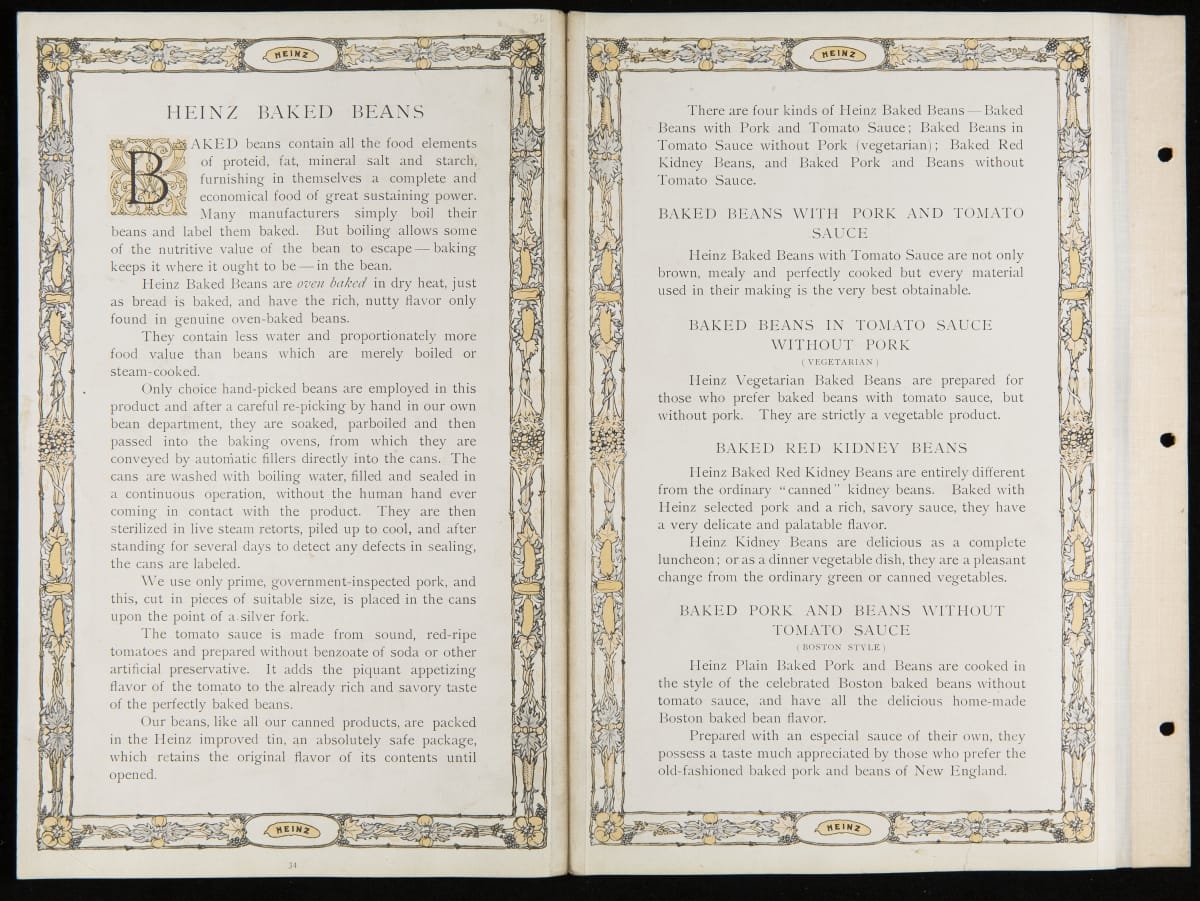 HEINZ
HEINZ BAKED BEANS
BAKED beans contain all the food elements
of proteid, fat, mineral salt and starch,
furnishing in themselves a complete and
economical food of great sustaining power.
Many manufacturers simply boil their
beans and label them baked. But boiling allows some
of the nutritive value of the bean to escape — baking
keeps it where it ought to be — in the bean.
Heinz Baked Beans are oven baked in dry heat, just
as bread is baked, and have the rich, nutty flavor only
found in genuine oven-baked beans.
They contain less water and proportionately more
food value than beans which are merely boiled or
steam-cooked.
Only choice hand-picked beans are employed in this
product and after a careful re-picking by hand in our own
bean department, they are soaked, parboiled and then
passed into the baking ovens, from which they are
conveyed by automatic fillers directly into the cans. The
cans are washed with boiling water, filled and sealed in
a continuous operation, without the human hand ever
coming in contact with the product. They are then
sterilized in live steam retorts, piled up to cool, and after
standing for several days to detect any defects in sealing,
the cans are labeled.
We use only prime, government-inspected pork, and
this, cut in pieces of suitable size, is placed in the cans
upon the point of a silver fork.
The tomato sauce is made from sound, red-ripe
tomatoes and prepared without benzoate of soda or other
artificial preservative. It adds the piquant appetizing
flavor of the tomato to the already rich and savory taste
of the perfectly baked beans.
Our beans, like all our canned products, are packed
in the Heinz improved tin, an absolutely safe package,
which retains the original flavor of its contents until
opened.
HEINZ
34
HEINZ
There are four kinds of Heinz Baked Beans — Baked
Beans with Pork and Tomato Sauce; Baked Beans in
Tomato Sauce without Pork (vegetarian); Baked Red
Kidney Beans, and Baked Pork and Beans without
Tomato Sauce.
BAKED BEANS WITH PORK AND TOMATO
SAUCE
Heinz Baked Beans with Tomato Sauce are not only
brown, mealy and perfectly cooked but every material
used in their making is the very best obtainable.
BAKED BEANS IN TOMATO SAUCE
WITHOUT PORK
(VEGETARIAN)
Heinz Vegetarian Baked Beans are prepared for
those who prefer baked beans with tomato sauce, but
without pork. They are strictly a vegetable product.
BAKED RED KIDNEY BEANS
Heinz Baked Red Kidney Beans are entirely different
from the ordinary “canned” kidney beans. Baked with
Heinz selected pork and a rich, savory sauce, they have
a very delicate and palatable flavor.
Heinz Kidney Beans are delicious as a complete
luncheon; or as a dinner vegetable dish, they are a pleasant
change from the ordinary green or canned vegetables.
BAKED PORK AND BEANS WITHOUT
TOMATO SAUCE
(BOSTON STYLE)
Heinz Plain Baked Pork and Beans are cooked in
the style of the celebrated Boston baked beans without
tomato sauce, and have all the delicious home-made
Boston baked bean flavor.
Prepared with an especial sauce of their own, they
possess a taste much appreciated by those who prefer the
old-fashioned baked pork and beans of New England.
HEINZ